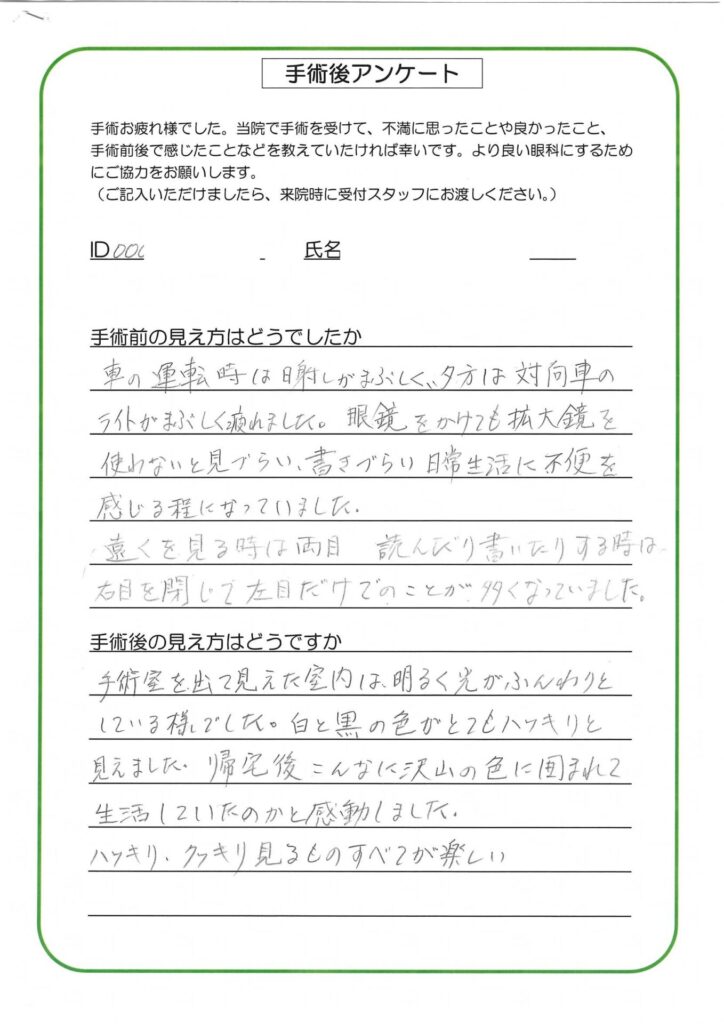 手術後アンケート
手術お疲れ様でした。当院で手術を受けて、不満に思ったことや良かったこと、
手術前後で感じたことなどを教えていたければ幸いです。より良い眼科にするため
にご協力をお願いします。
（ご記入いただけましたら、来院時に受付スタッフにお渡しください。）
ID 000 氏名
手術前の見え方はどうでしたか
車の運転時は日射しがまぶしく、夕方は対向車の
ライトがまぶしく疲れました。眼鏡をかけても拡大鏡を
使わないと見づらい、書きづらい日常生活に不便を
感じる程になっていました。
遠くを見る時は両目 読んだり書いたりする時は
右目を閉じて左目だけでのことが多くなっていました。
手術後の見え方はどうですか
手術室を出て見えた室内は、明るく光がふんわりと
している様でした。白と黒の色がとてもハッキリと
見えました。帰宅後こんなに沢山の色に囲まれて
生活していたのかと感動しました。
ハッキリ、クッキリ見るものすべてが楽しい